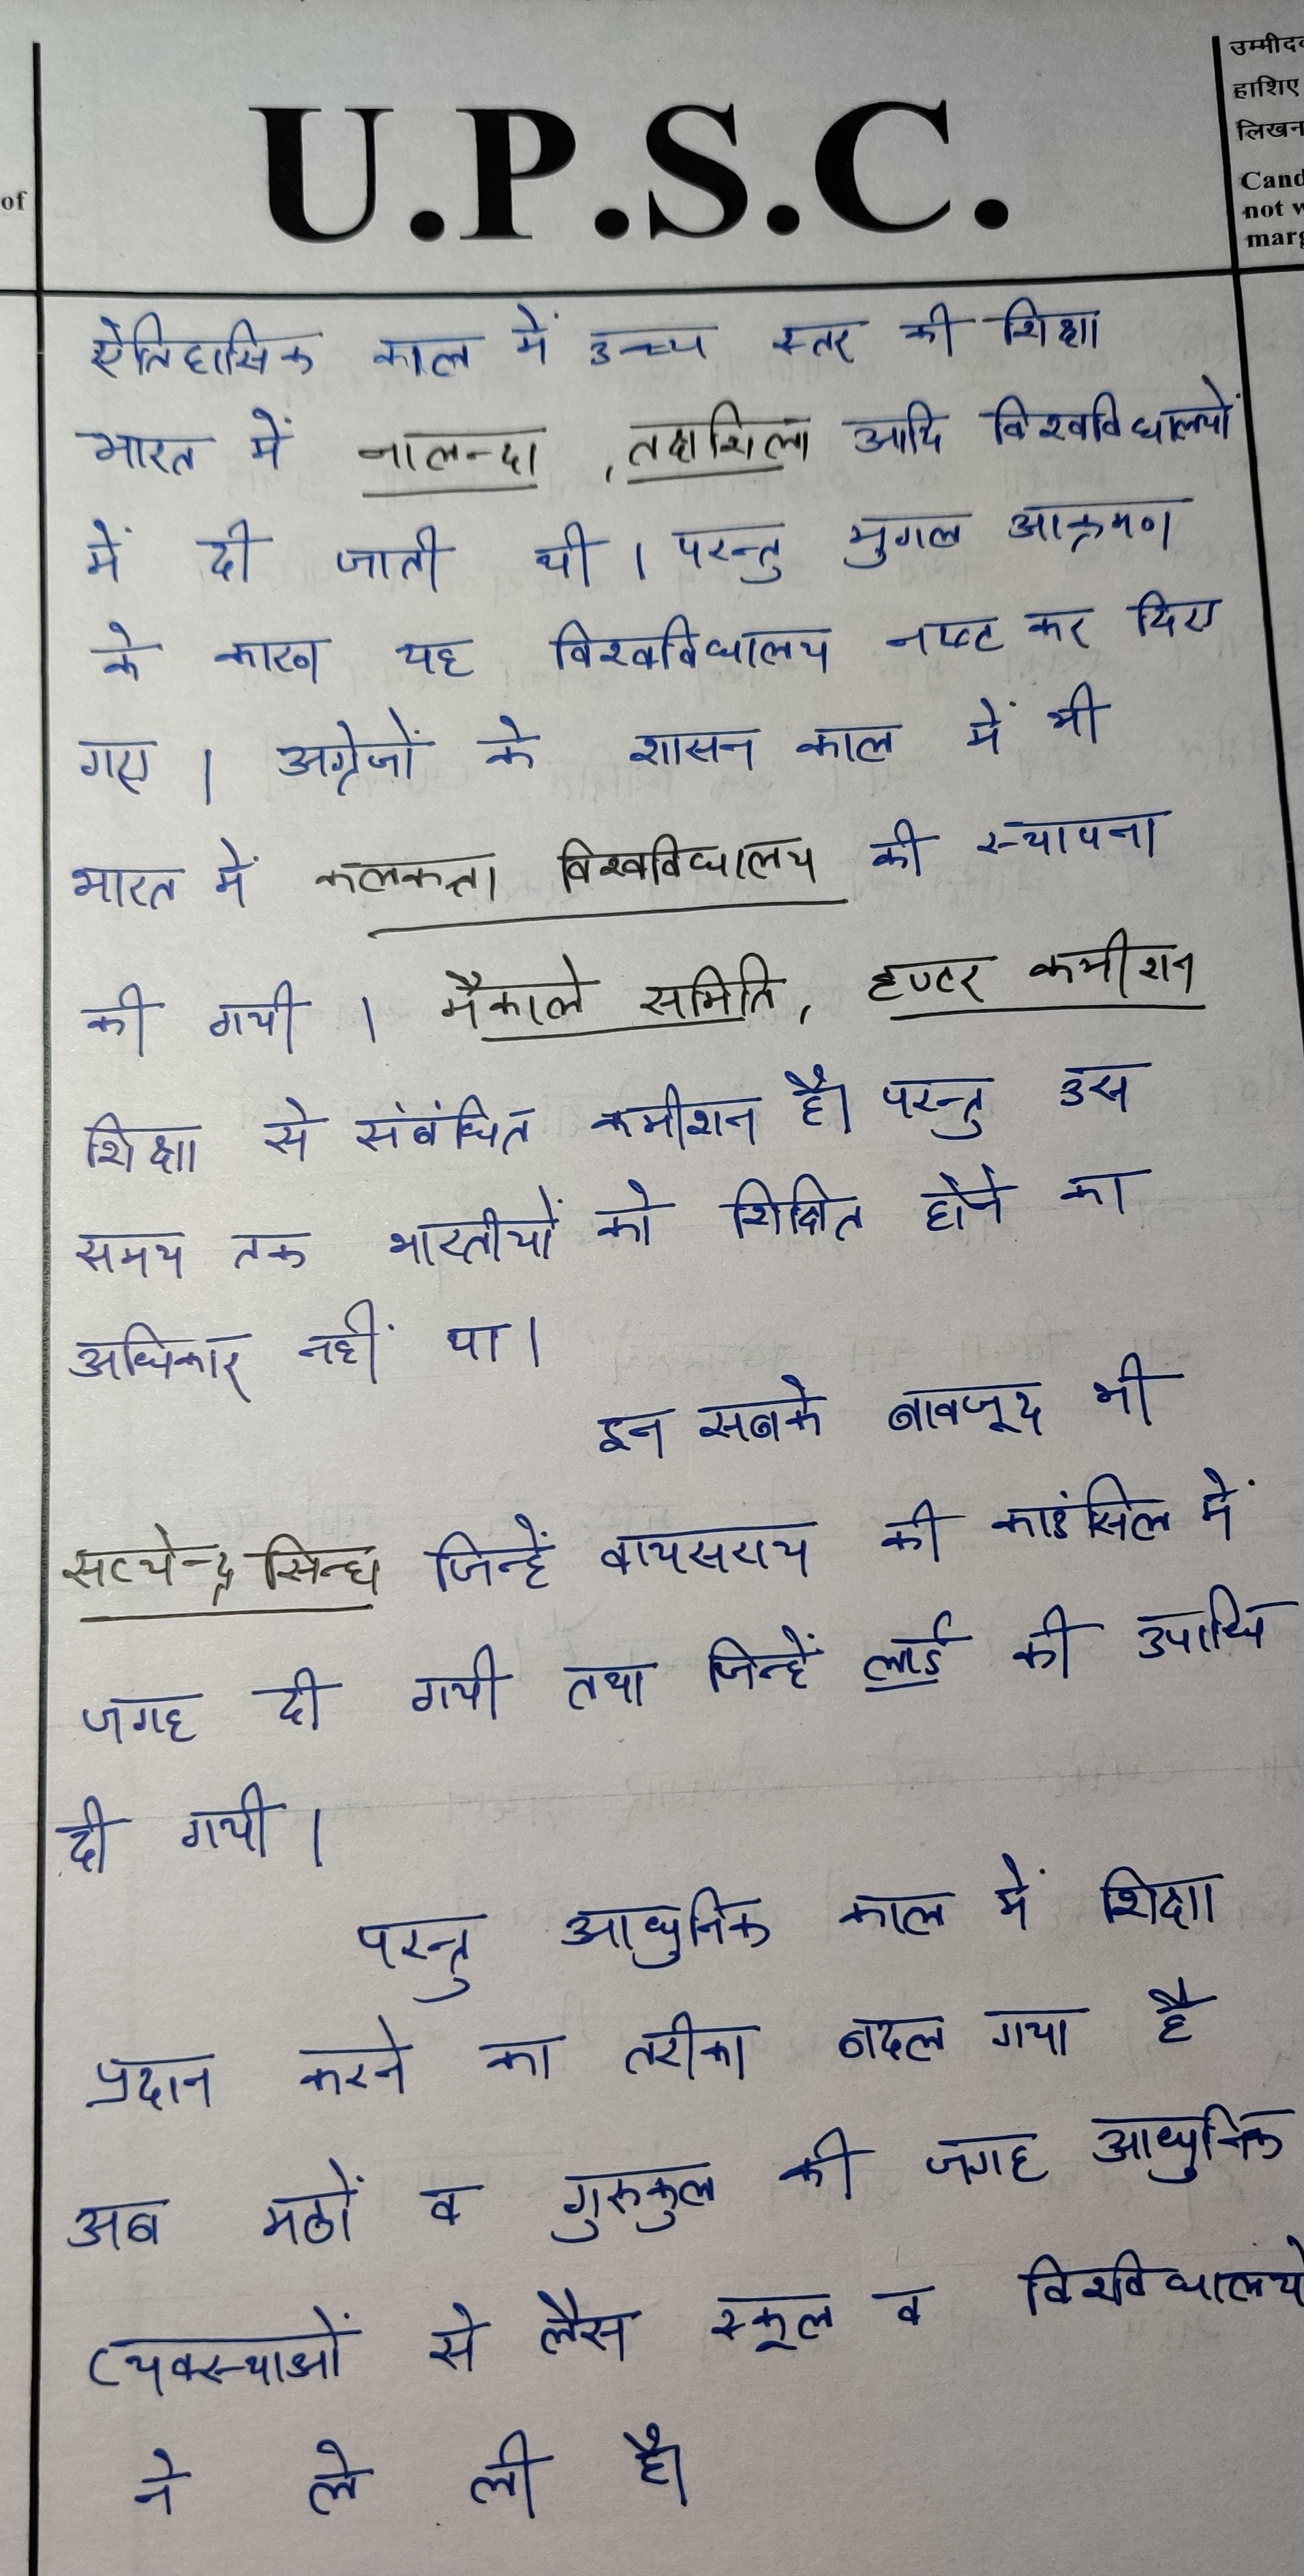 of
U.P.S.C.
उम्मीद
हाशिए
लिखन
Cand
not w
marg
ऐतिहासिक काल में उच्च स्तर की शिक्षा
भारत में नालन्दा , तक्षशिला आदि विश्वविद्यालयों
में दी जाती थी । परन्तु मुगल आक्रमण
के कारण यह विश्वविद्यालय नष्ट कर दिए
गए । अग्रेजों के शासन काल में भी
भारत में कलकत्ता विश्वविद्यालय की स्थापना
की गयी । मैकाले समिति, हण्टर कमीशन
शिक्षा से संबंधित कमीशन है। परन्तु उस
समय तक भारतीयों को शिक्षित होने का
अधिकार नहीं था ।
इन सबके बावजूद भी
सत्येन्द्र सिन्हा जिन्हें वायसराय की काउंसिल में
जगह दी गयी तथा जिन्हें लार्ड की उपाधि
दी गयी ।
परन्तु आधुनिक काल में शिक्षा
प्रदान करने का तरीका बदल गया है
अब मठों व गुरुकुल की जगह आधुनिक
व्यवस्थाओं से लैस स्कूल व विश्वविद्यालयो
ने ले ली है।